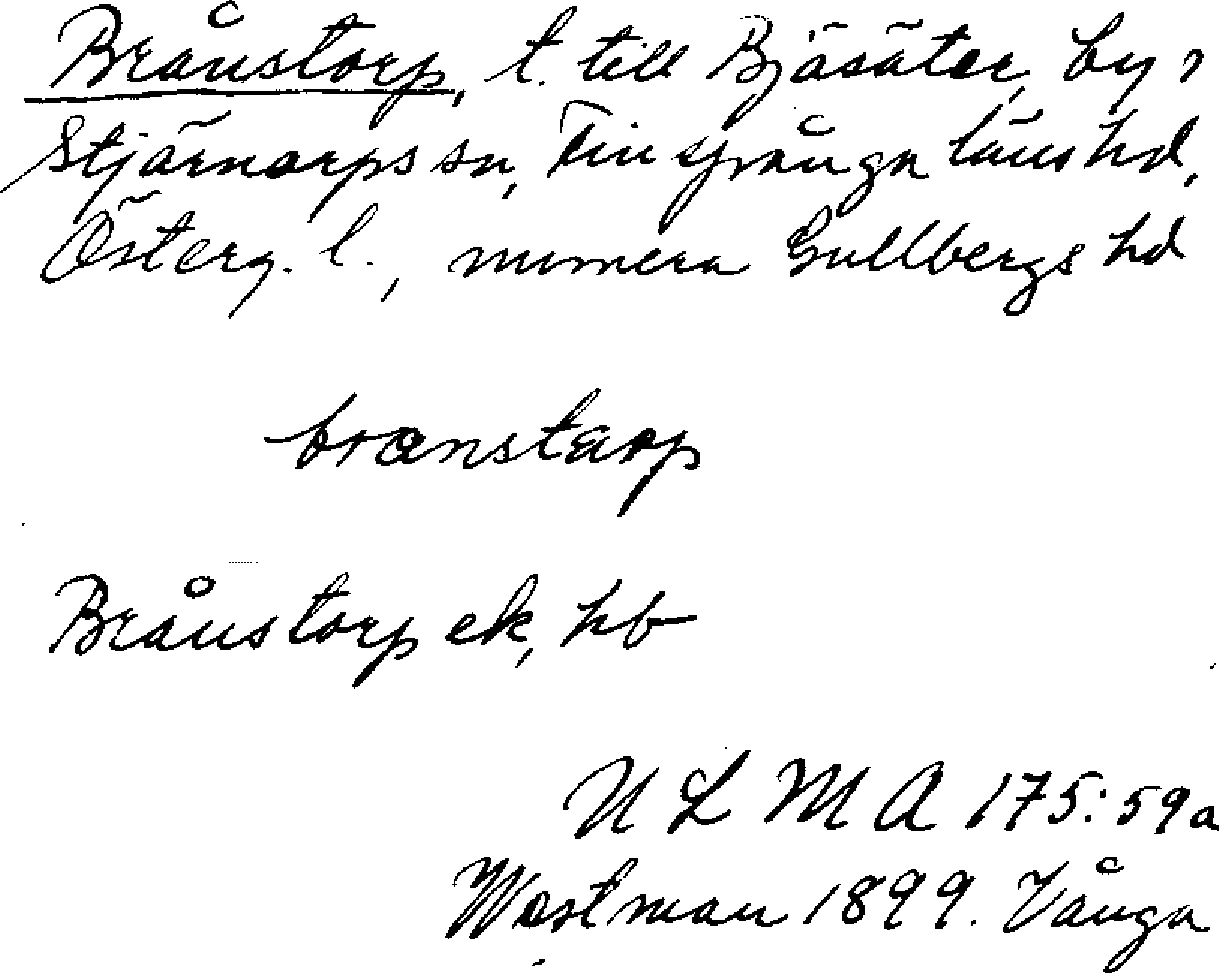 Brånstorp, t. till Bjäsäter, by i
Stjärnorps sn, Finspånga läns hd,
Österg. l., numera Gullbergs hd
brænstarp
Brånstorp ek, hb
ULMA 175:59a
Westman 1899. Vånga